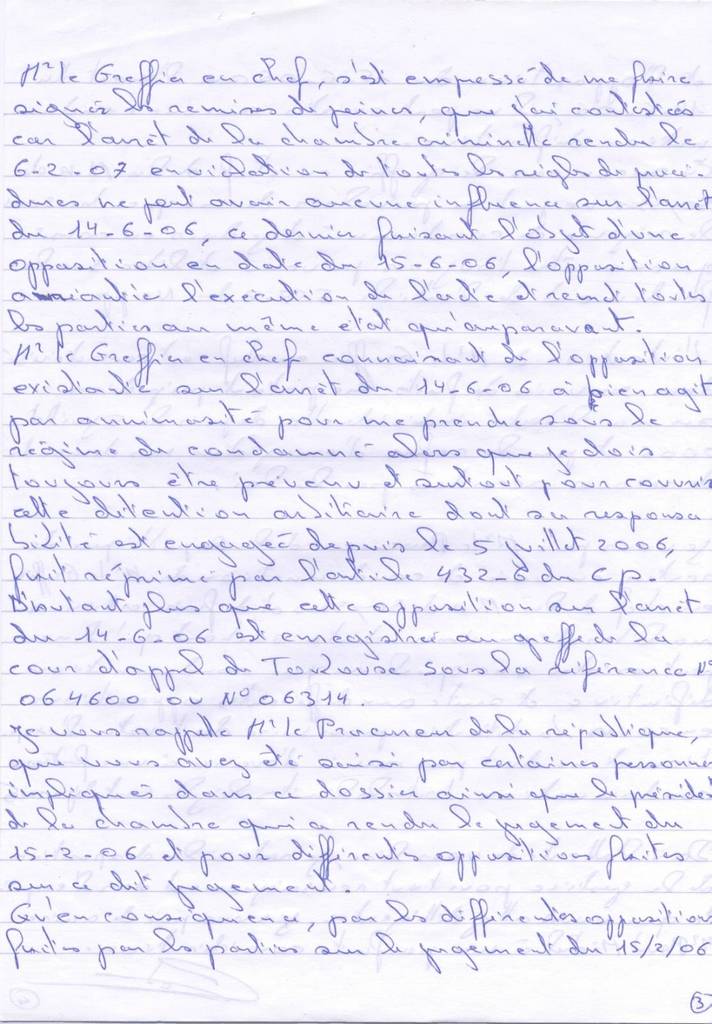 Mr le Greffier en chef, s'est empressé de me faire
signer les remises de peines, que j'ai contestées
car l'arrêt de la chambre criminelle rendu le
6-2-07 en violation de toutes les règles de procé-
dures ne peut avoir aucune influence sur l'arrêt
du 14-6-06, ce dernier faisant l'objet d'une
opposition en date du 15-6-06, l'opposition
l'exécution de l'acte et remet toutes
les parties au même état qu'auparavant.
Mr le Greffier en chef connaissant de l'opposition
existante sur l'arrêt du 14-6-06 à bien agit
par animosité pour me prendre sous le
régime de condamné alors que je dois
toujours être prévenu et surtout pour couvrir
cette détention arbitraire dont sa responsa
bilité est engagée depuis le 5 juillet 2006,
fait réprimé par l'article 432-6 du CP.
D'autant plus que cette opposition sur l'arrêt
du 14-6-06 est enregistrée au greffe de la
cour d'appel de Toulouse sous la référence N°
064600 ou N° 06314.
Je vous rappelle Mr le Procureur de la république,
que vous avez été saisi par certaines personnes
impliqués dans ce dossier ainsi que le président
de la chambre qui a rendu le jugement du
15-2-06 et pour différents oppositions faites
sur ce dit jugement.
Qu'en conséquence, par les différentes opposition
faites par les parties sur le jugement du 15/2/06
3